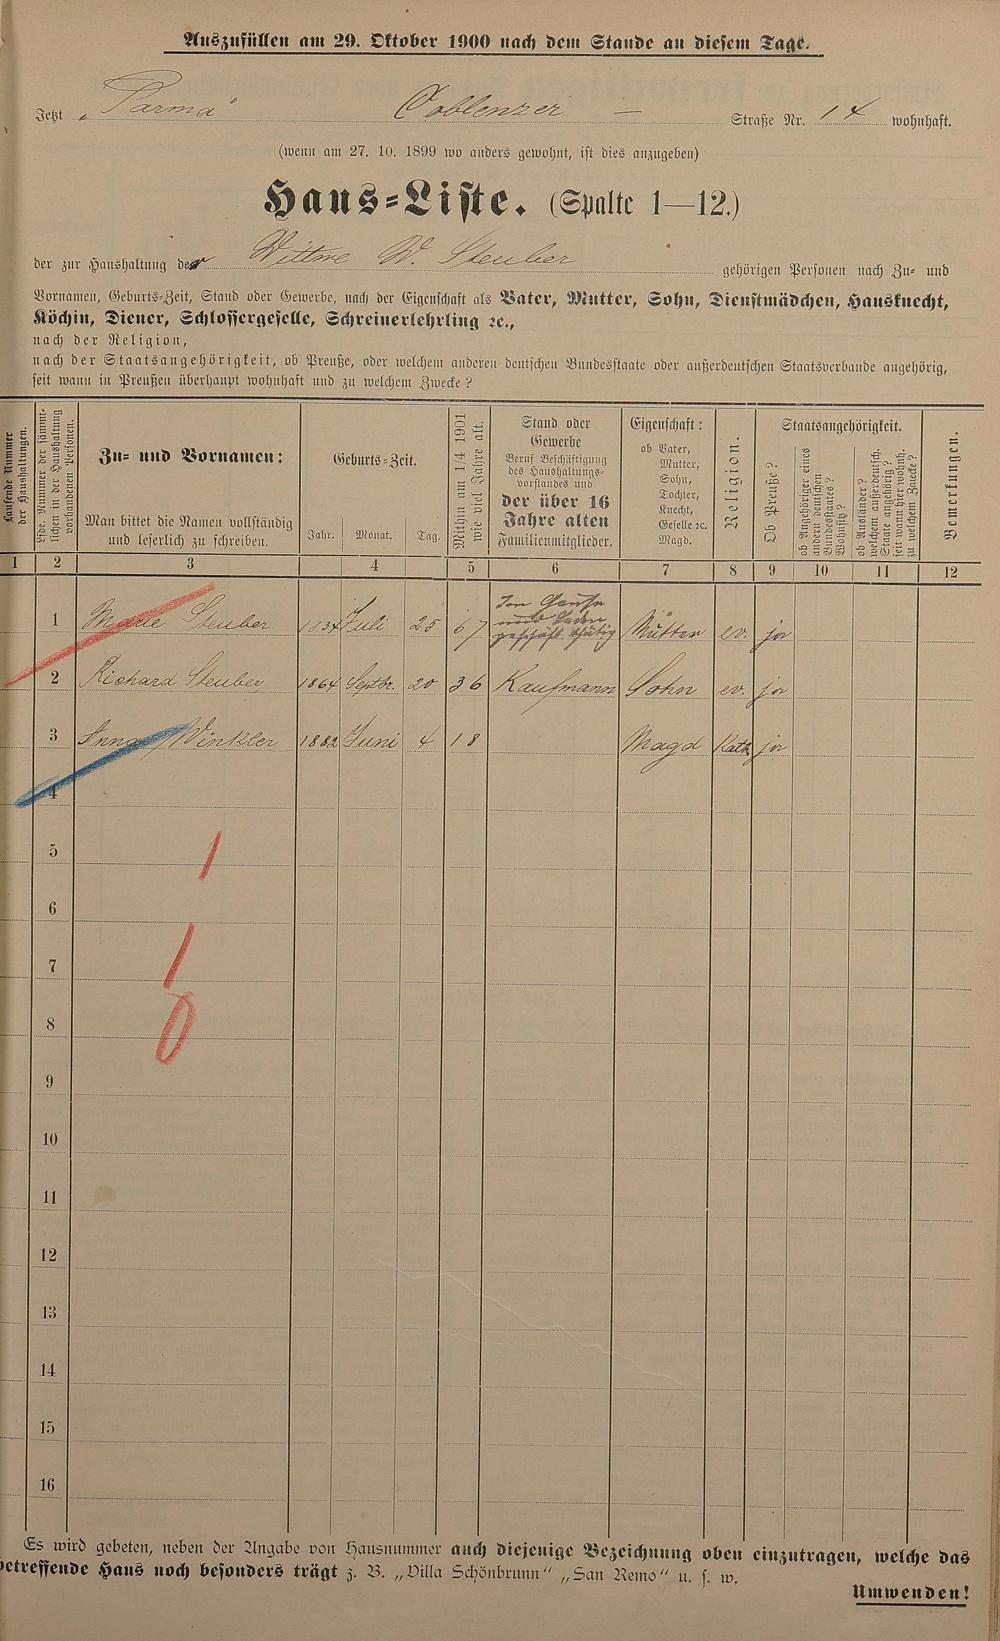 Auszufüllen am 29. Oktober 1900 nach dem Stande an diesem Tage.
Jetzt „Parma“ Coblenzer – Straße Nr. 14 wohnhaft.
(wenn am 27. 10. 1899 wo anders gewohnt, ist dies anzugeben)
Haus-Liste. (Spalte 1—12.)
der zur Haushaltung der Wittwe W. Steuber gehörigen Personen nach Zu- und
Vornamen, Geburts-Zeit, Stand oder Gewerbe, nach der Eigenschaft als Vater, Mutter, Sohn, Dienstmädchen, Hausknecht,
Köchin, Diener, Schlossergeselle, Schreinerlehrling ꝛc.,
nach der Religion,
nach der Staatsangehörigkeit, ob Preuße, oder welchem anderen deutschen Bundesstaate oder außerdeutschen Staatsverbande angehörig,
seit wann in Preußen überhaupt wohnhaft und zu welchem Zwecke?
Laufende Nummer
der Haushaltungen.
Lfde. Nummer der sämmt-
lichen in der Haushaltung
vorhandenen Personen.
Zu- und Vornamen:
Man bittet die Namen vollständig
und leserlich zu schreiben.
Geburts-Zeit.
Jahr. Monat. Tag.
Mithin am 1/4 1901
wie viel Jahre alt.
Stand oder
Gewerbe
Beruf Beschäftigung
des Haushaltungs-
vorstandes und
der über 16
Jahre alten
Familienmitglieder.
Eigenschaft:
ob Vater,
Mutter,
Sohn,
Tochter,
Knecht,
Geselle ꝛc.
Magd.
Religion.
Staatsangehörigkeit.
Ob Preuße?
ob Angehöriger eines
andern deutschen
Bundesstaates?
Wohnsitz?
ob Ausländer?
welchem außerdeutsch.
Staate angehörig?
seit wann hier wohnh.
zu welchem Zwecke?
Bemerkungen.
1 2 3 4 5 6 7 8 9 10 11 12
1 Marie Steuber 1834 Juli 25 67 Im Hause und Laden geschäft thätig Mutter ev. ja
2 Richard Steuber 1864 Septbr. 20 36 Kaufmann Sohn ev. ja
3 Anna Winkler 1882 Juni 4 18 Magd Kath. ja
4
5 1
6
7 1
8 0
9
10
11
12
13
14
15
16
Es wird gebeten, neben der Angabe von Hausnummer auch diejenige Bezeichnung oben einzutragen, welche das
betreffende Haus noch besonders trägt z. B. „Villa Schönbrunn“ „San Remo“ u. s. w.
Umwenden!